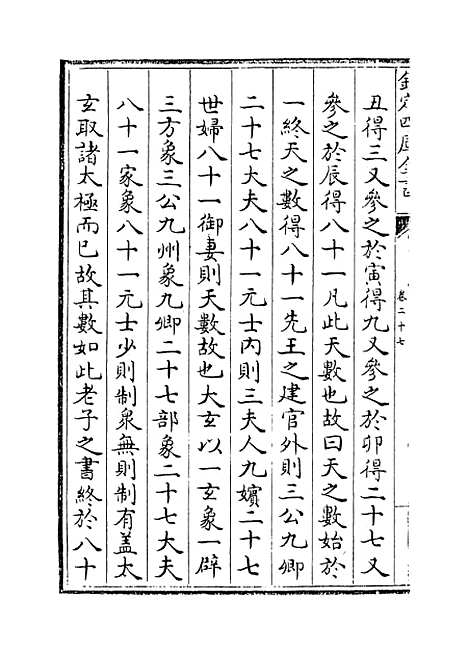 欽定四庫全書
卷二十七
丑得三又參之於寅得九又參之於卯得二十七又
參之於辰得八十一凡此天數也故曰天之數始於
一終天之數得八十一先王之建官外則三公九卿
二十七大夫八十一元士内則三夫人九嬪二十七
世婦八十一御妻則天數故也大玄以一玄象一辟
三方象三公九州象九卿二十七部象二十七大夫
八十一家象八十一元士少則制衆無則制有蓋太
玄取諸太極而已故其數如此老子之書終於八十